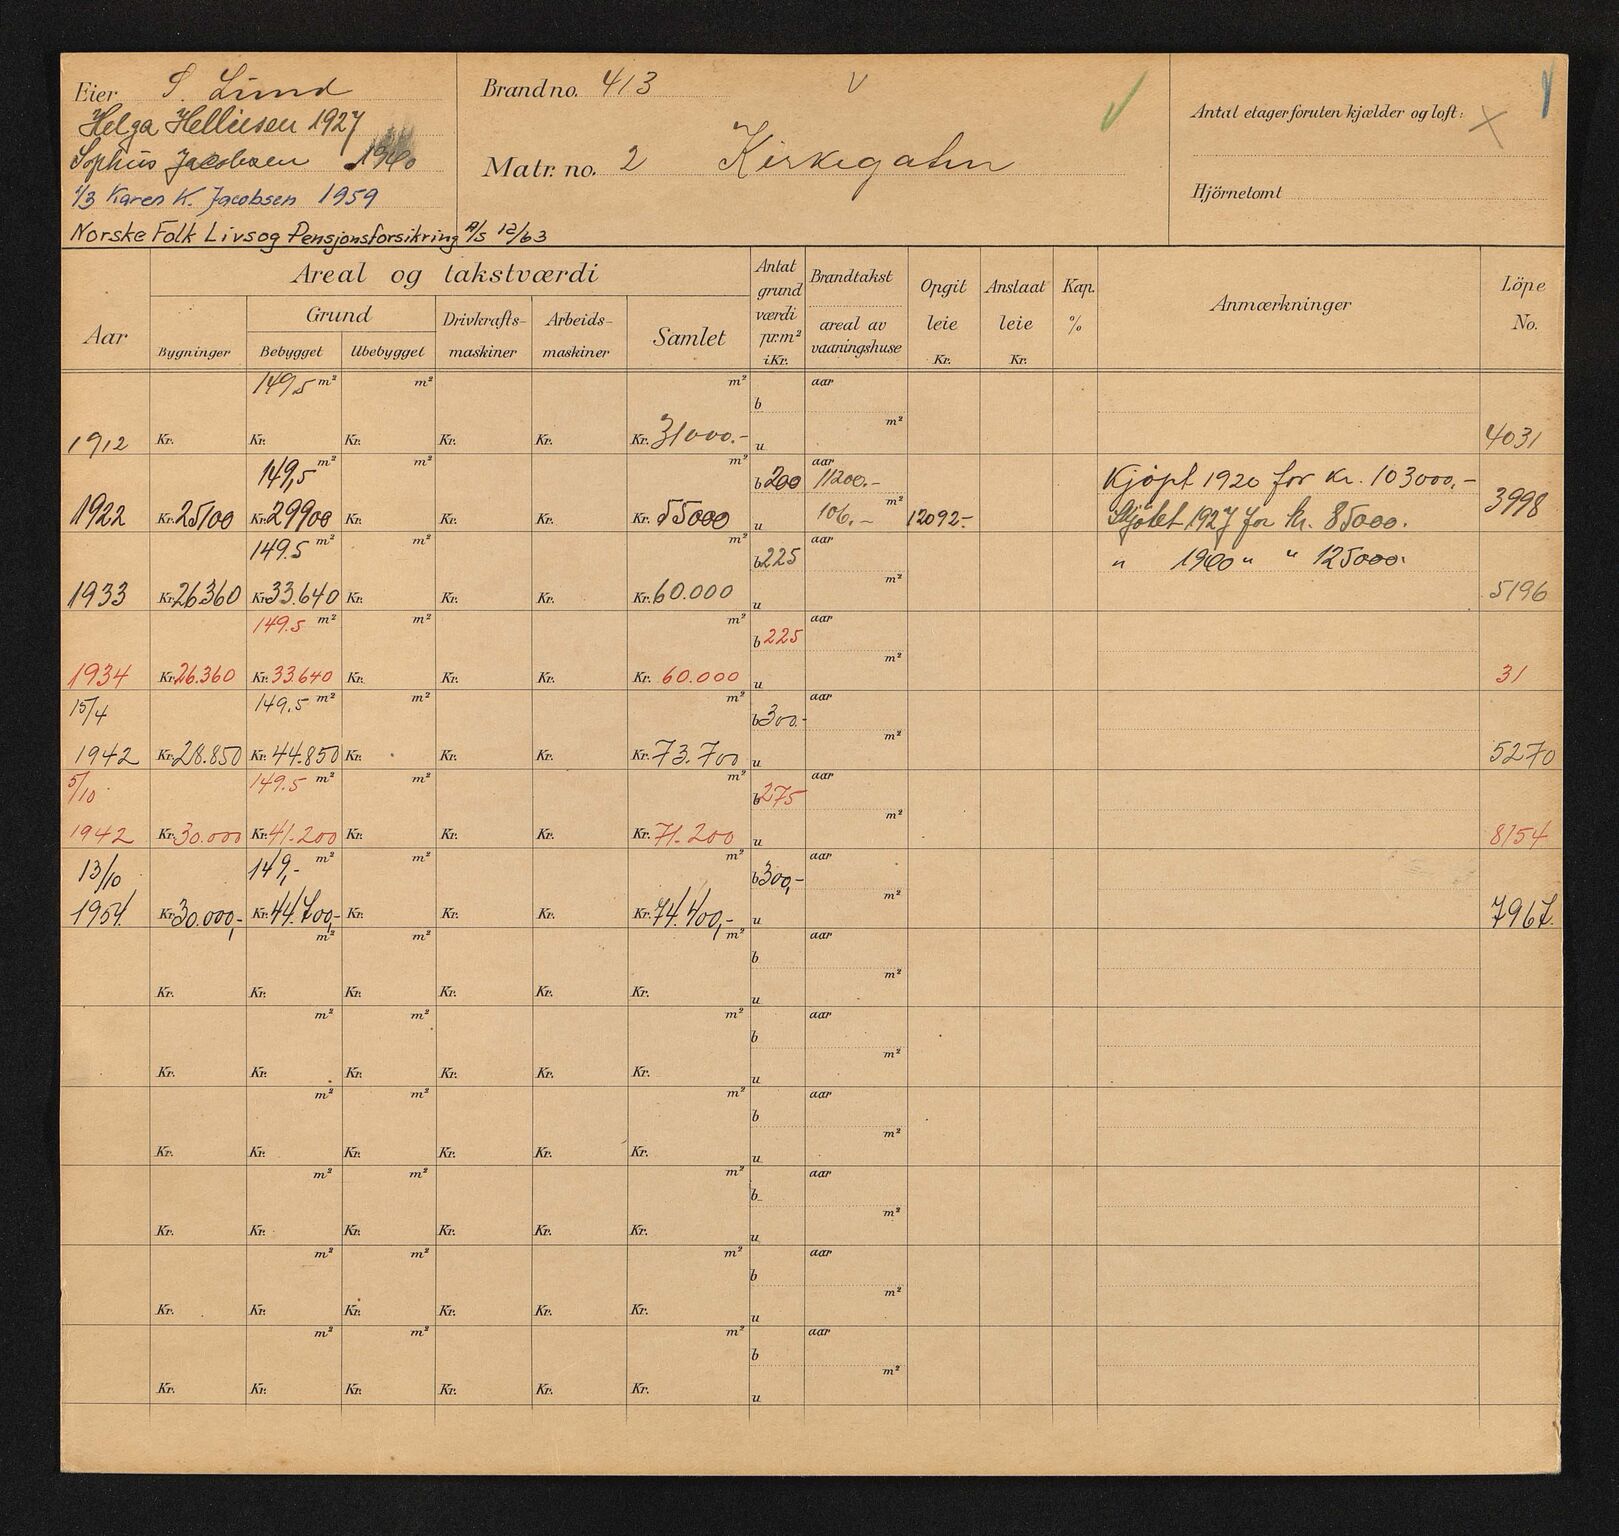 Eier S. Lund
Helga Helliesen 1927
Sophus Jacobsen 1940
1/3 Karen K. Jacobsen 1959
Norske Folk Livs og Pensjonsforsikring A/S 12/63
Brand no. 413 V
Matr. no. 2 Kirkegaten
Antal etager foruten kjælder og loft:
Hjörnetomt
Aar
Areal og takstværdi
Bygninger
Grund
Bebygget Ubebygget
Drivkrafts-maskiner
Arbeids-maskiner
Samlet
Antat grund værdi pr.m² i Kr.
Brandtakst
areal av vaaningshuse
Opgit leie Kr.
Anslaat leie Kr.
Kap. %
Anmærkninger
Löpe No.
149,5 m² m² m² b aar m²
1912 Kr. Kr. Kr. Kr. Kr. Kr. 31000.- u 4031
149,5 m² m² m² b 200 aar 11200.- Kjöpt 1920 for kr. 103000,-
1922 Kr. 25100 Kr. 29900 Kr. Kr. Kr. Kr. 55000 u 106.- m² 12092.- Skjötet 1927 for kr. 85000. 3998
149.5 m² m² m² b 225 aar m² " 1940 " " 125000.
1933 Kr. 26360 Kr. 33.640 Kr. Kr. Kr. Kr. 60.000 u 5196
149.5 m² m² m² b 225 aar m²
1934 Kr. 26.360 Kr. 33640 Kr. Kr. Kr. Kr. 60.000 u 31
15/4 149.5 m² m² m² b 300.- aar m²
1942 Kr. 28.850 Kr. 44.850 Kr. Kr. Kr. Kr. 73.700 u 5270
5/10 149.5 m² m² m² b 275 aar m²
1942 Kr. 30.000 Kr. 41.200 Kr. Kr. Kr. Kr. 71.200 u 8154
13/10 149,- m² m² m² b 300,- aar m²
1954 Kr. 30.000,- Kr. 44.700,- Kr. Kr. Kr. Kr. 74.400,- u 7967.
m² m² m² b aar m²
Kr. Kr. Kr. Kr. Kr. Kr. u
m² m² m² b aar m²
Kr. Kr. Kr. Kr. Kr. Kr. u
m² m² m² b aar m²
Kr. Kr. Kr. Kr. Kr. Kr. u
m² m² m² b aar m²
Kr. Kr. Kr. Kr. Kr. Kr. u
m² m² m² b aar m²
Kr. Kr. Kr. Kr. Kr. Kr. u
m² m² m² b aar m²
Kr. Kr. Kr. Kr. Kr. Kr. u